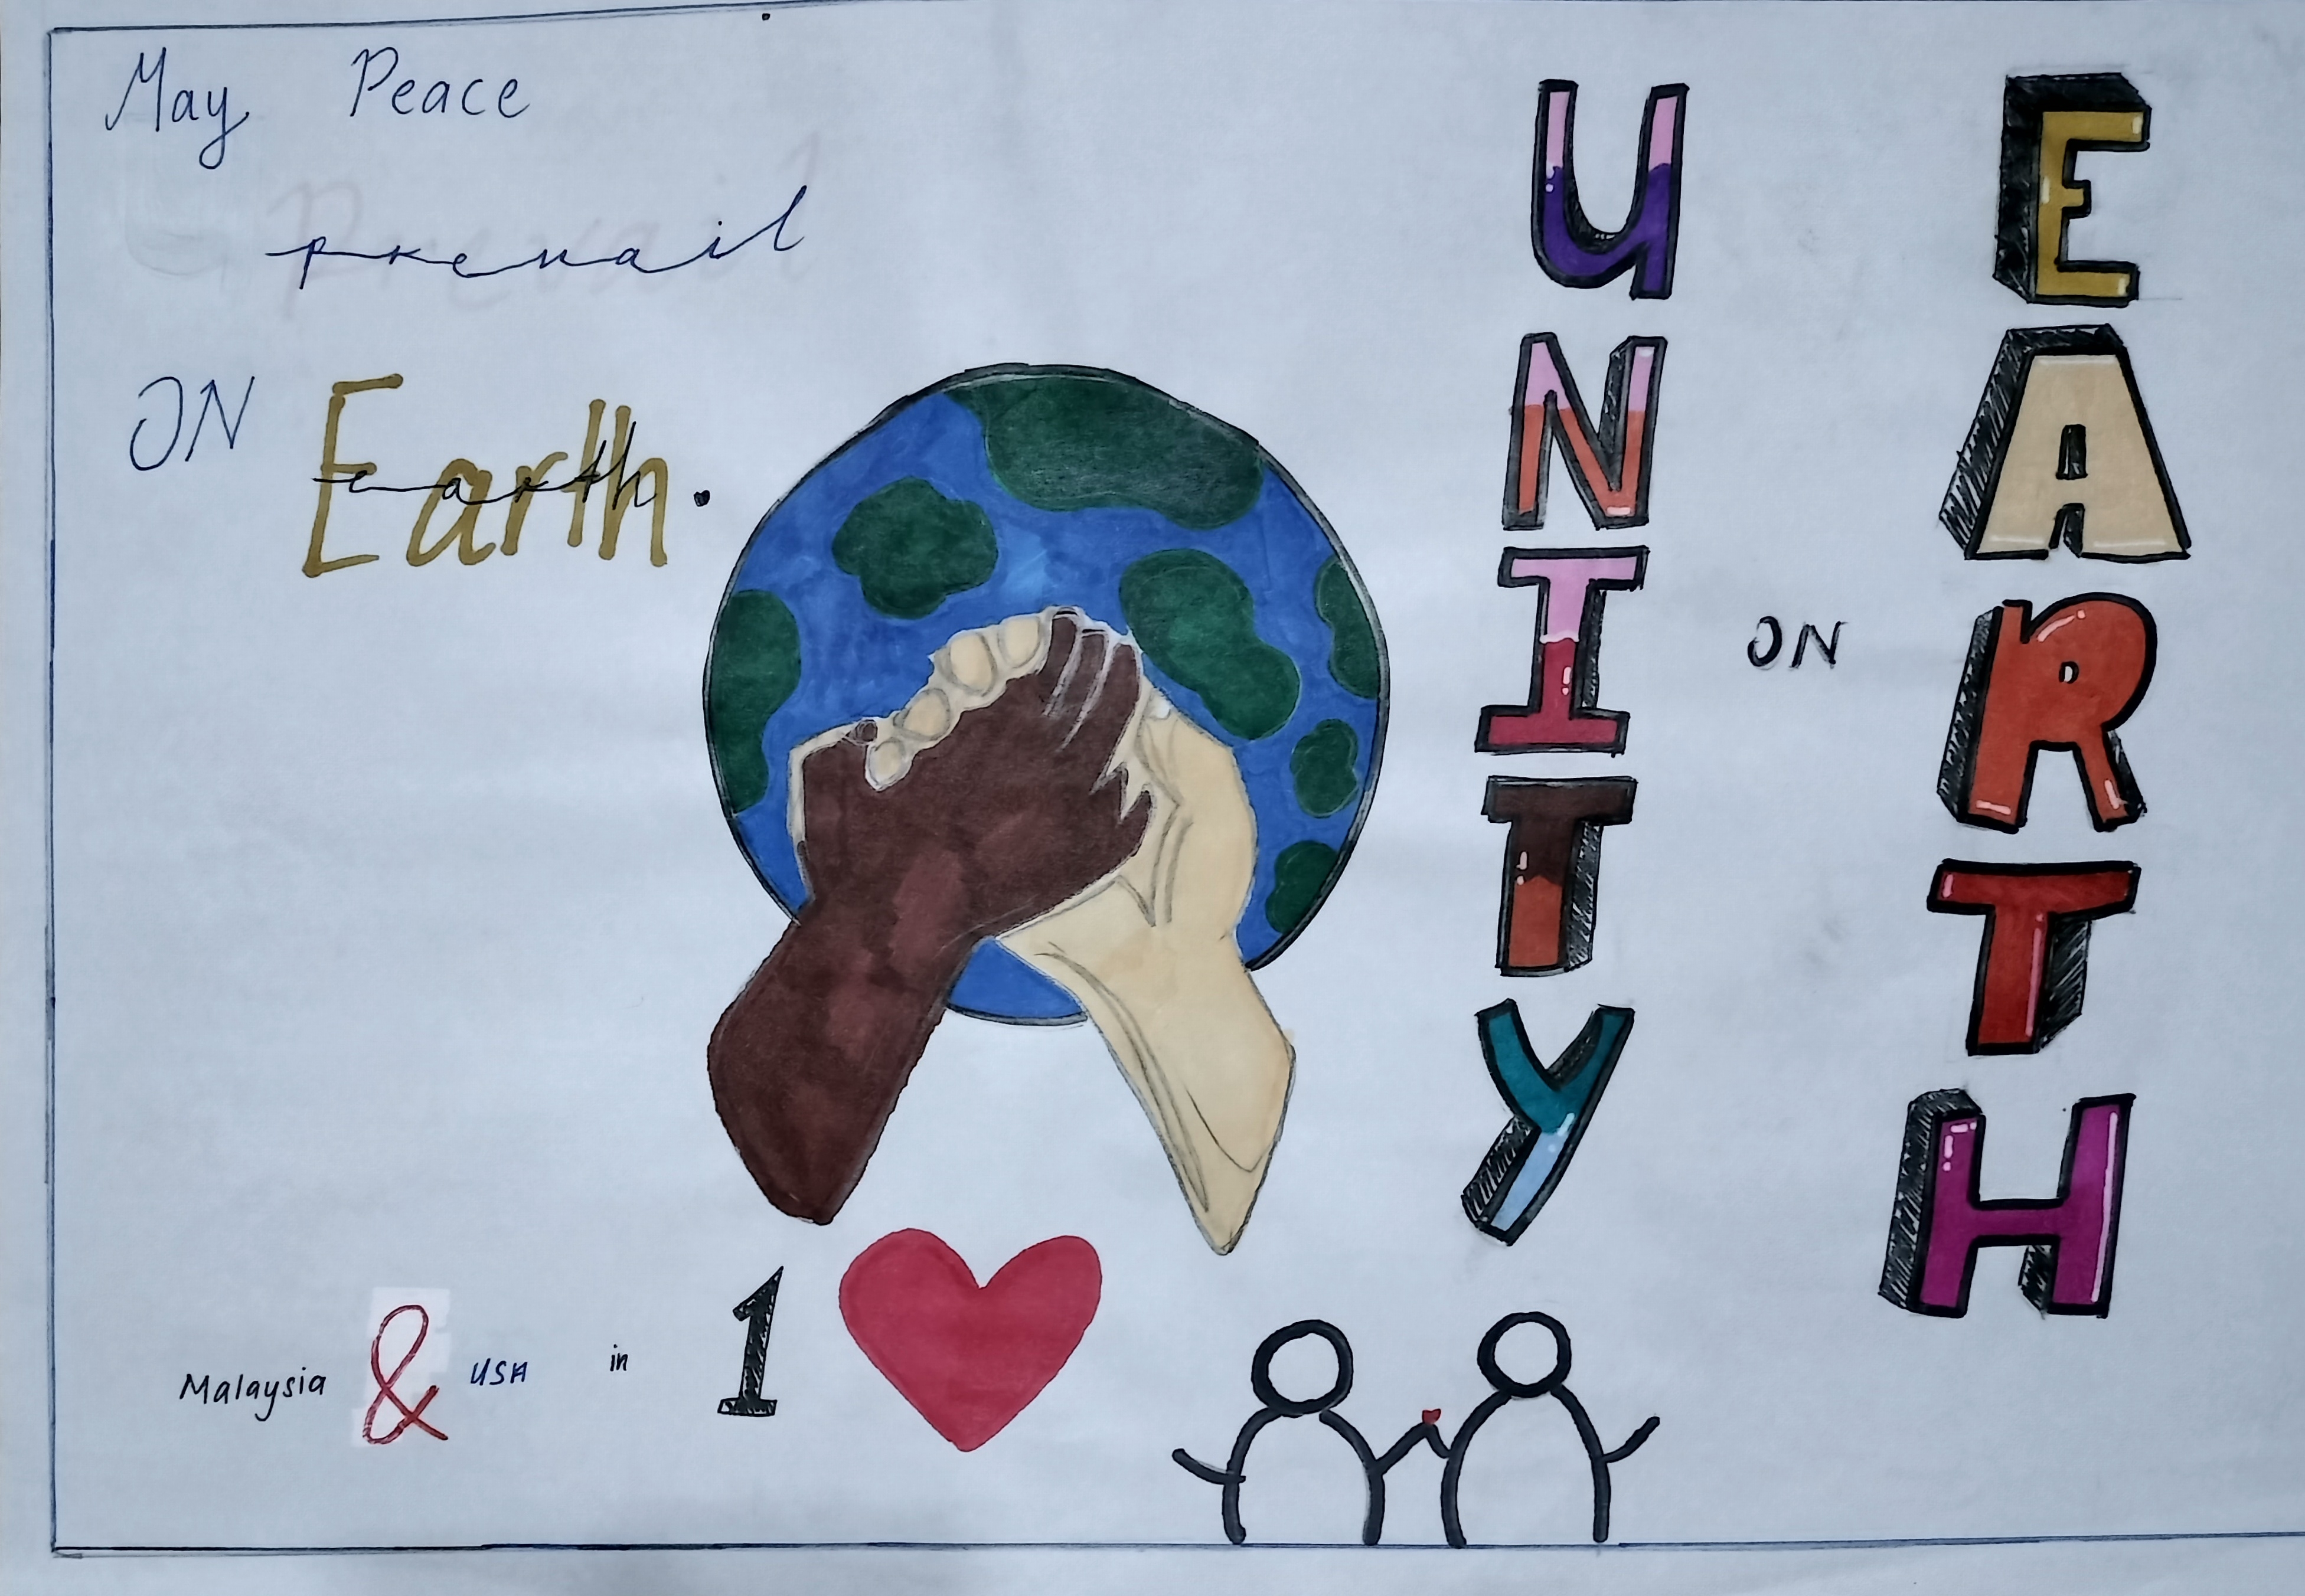 May Peace
prevail
ON Earth.
UNITY
ON
EARTH
Malaysia & USA in 1